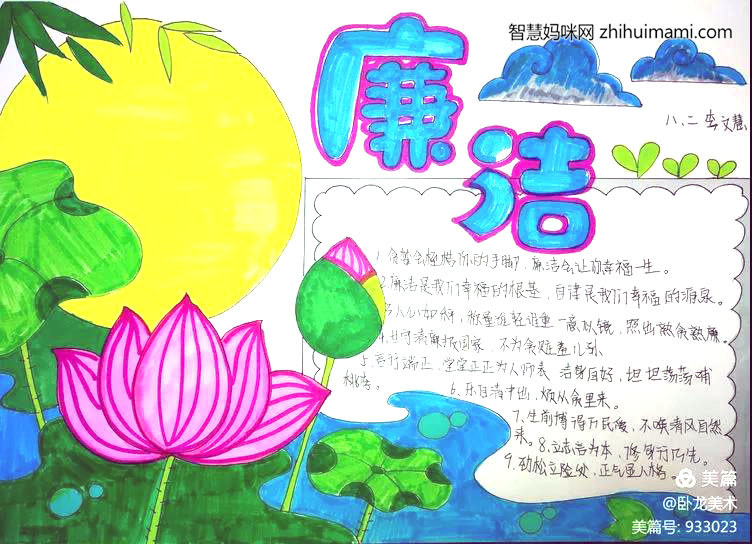 智慧妈咪网 zhihuimami.com
廉
洁
八、二 李文慧
1.贪婪会桎梏你的手脚，廉洁会让你幸福一生。
2.廉洁是我们幸福的根基，自律是我们幸福的源泉。
3.人心如秤，称量谁轻谁重 民意似镜，照出孰贪孰廉。
4.甘守清 报国家，不为贪赃羞儿孙
5.言行端正，堂堂正正为人师表 洁身自好，坦坦荡荡哺
桃李。
6.乐自清中出，烦从贪里来。
7.生前博得万民颂，不唤清风自然
来。8.立志言为本，修身行为先。
9.劲松立险处，正气显人格。
美篇
@卧龙美术
美篇号: 933023